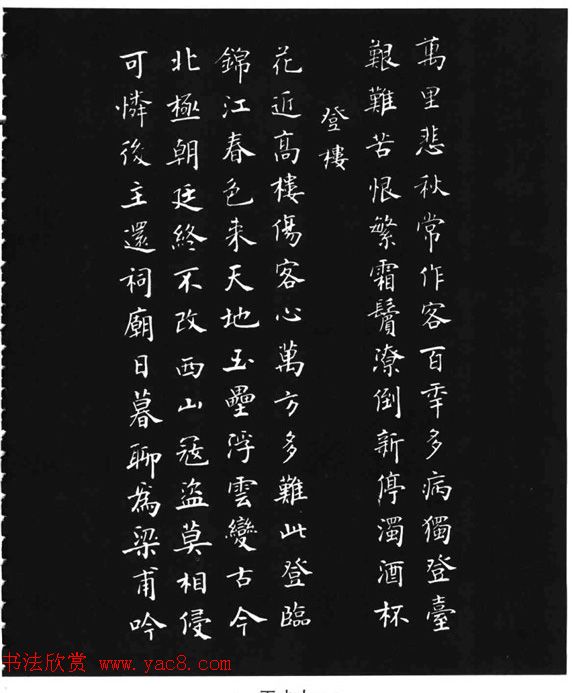 萬里悲秋常作客百年多病獨登臺
艱難苦恨繁霜鬢潦倒新停濁酒杯
登樓
花近高樓傷客心萬方多難此登臨
錦江春色來天地玉壘浮雲變古今
北極朝廷終不改西山寇盜莫相侵
可憐後主還祠廟日暮聊為梁甫吟
书法欣赏 www.yac8.com